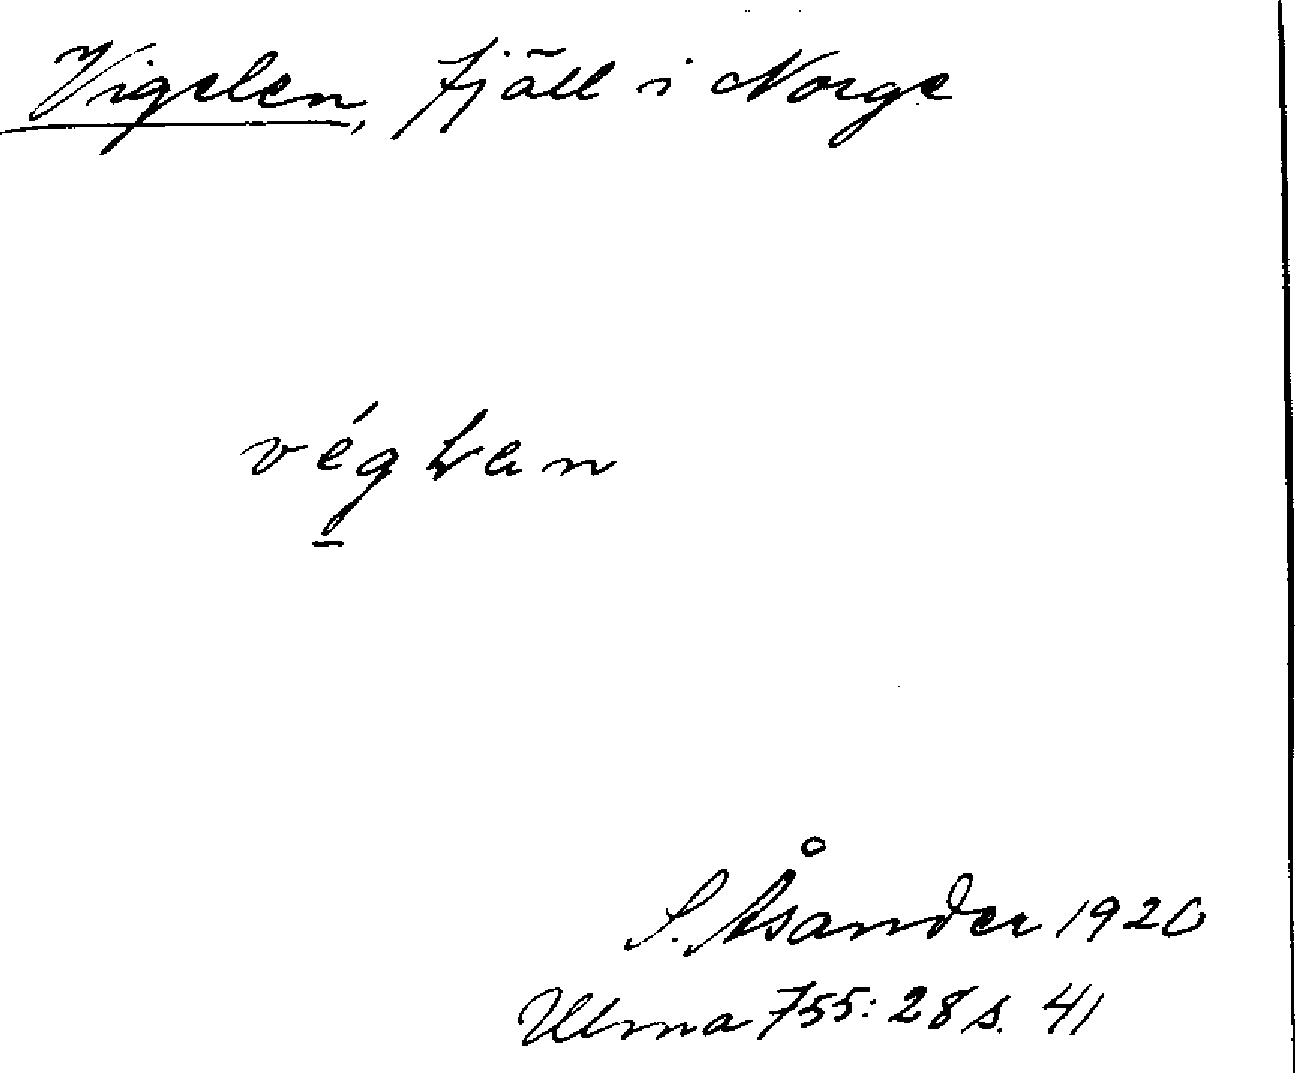 Vigelen, fjäll i Norge
S. Åsander 1920
Ulma 755:28 s. 41